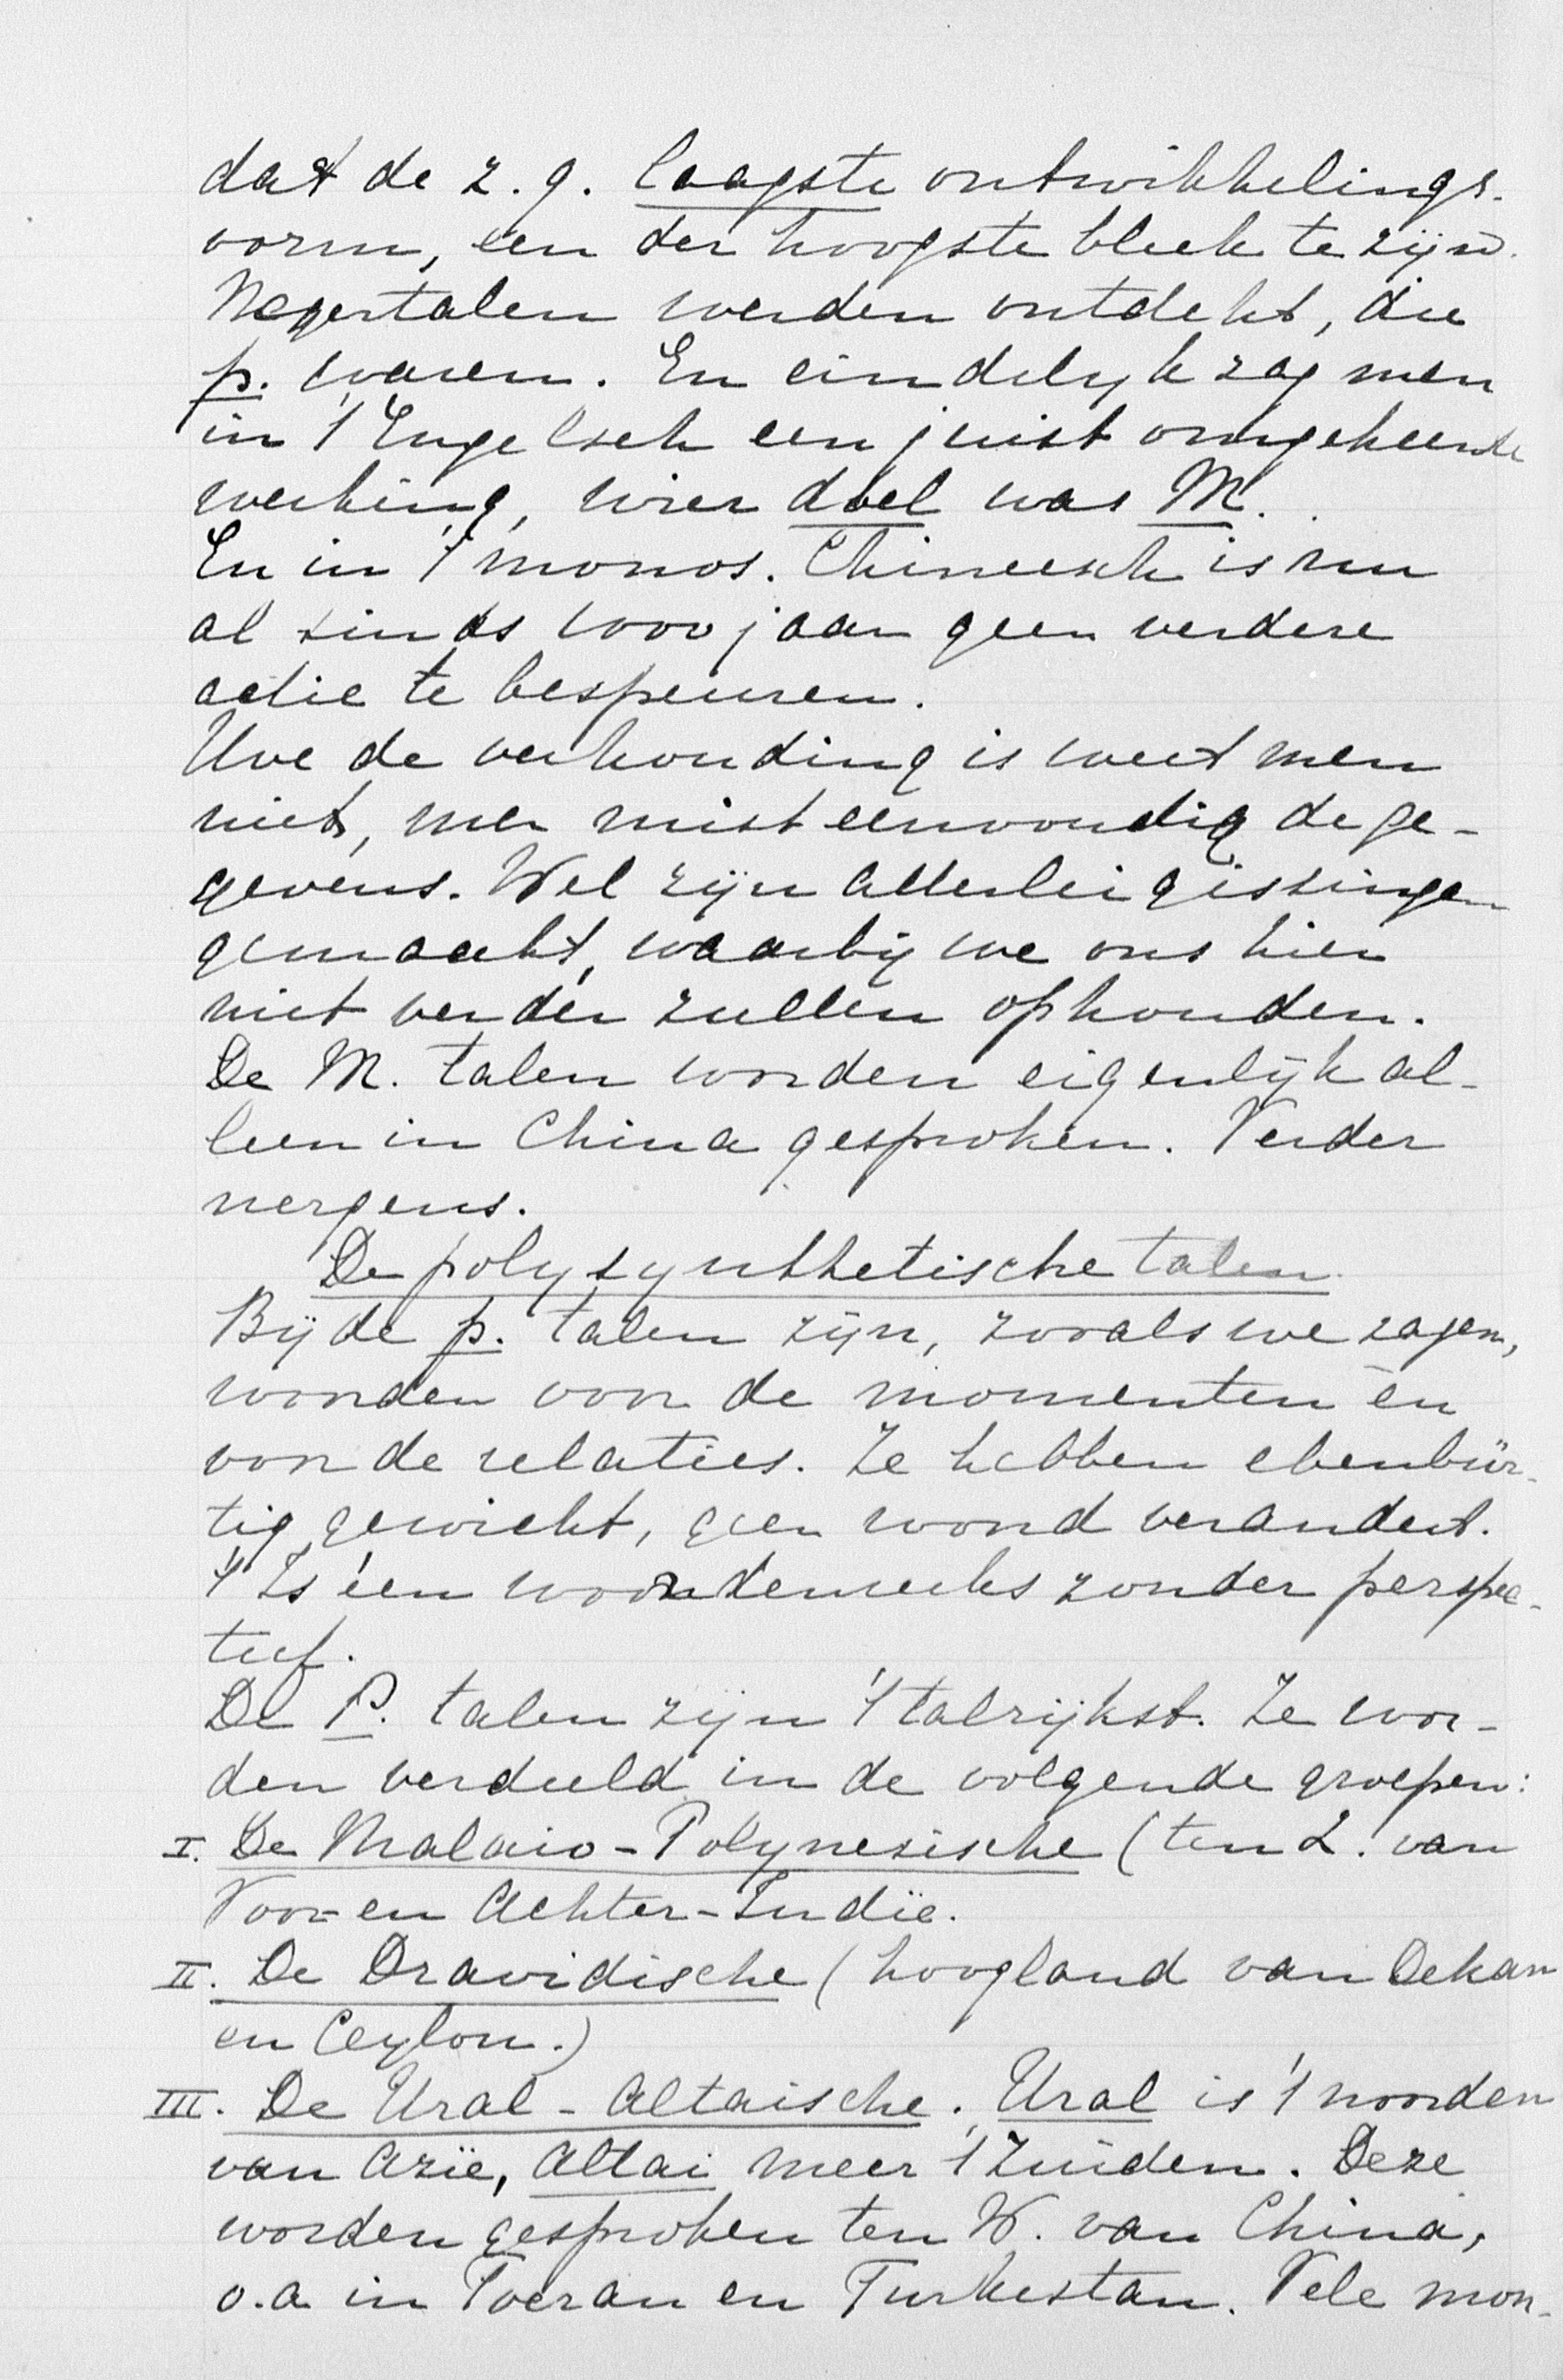 dat de z.g. laagste ontwikkelings-
vorm, een der hoogste bleek te zijn.
Negertalen werden ontdekt, die
p. waren. En eindelijk zag men
in 't Engelsch een juist omgekeerde
werking, wier doel was M.
En in 't monos. Chineesch is nu
al sinds 1000 jaar geen verdere
actie te bespeuren.
Hoe de verhouding is weet men
niet, men mist eenvoudig de ge-
gevens. Wel zijn allerlei gissingen
gemaakt, waarbij we ons hier
niet verder zullen ophouden.
De M. talen worden eigenlijk al-
leen in China gesproken. Verder
nergens.
De polysynthetische talen
Bij de p. talen zijn, zooals we zagen,
woorden voor de momenten èn
voor de relaties. Ze hebben ebenbür-
tig gewicht, geen woord verandert.
't Is één woordenreeks zonder perspec-
tief.
De P. talen zijn 't talrijkst. Ze wor-
den verdeeld in de volgende groepen:
I. De Malaio-Polynesische (ten Z. van
Voor- en Achter-Indië.
II. De Dravidische (hoogland van Dekan
en Ceylon.)
III. De Ural-Altaische. Ural is 't noorden
van Azië, Altai meer 't Zuiden. Deze
worden gesproken ten W. van China,
o.a in Toeran en Turkestan. Vele mon-